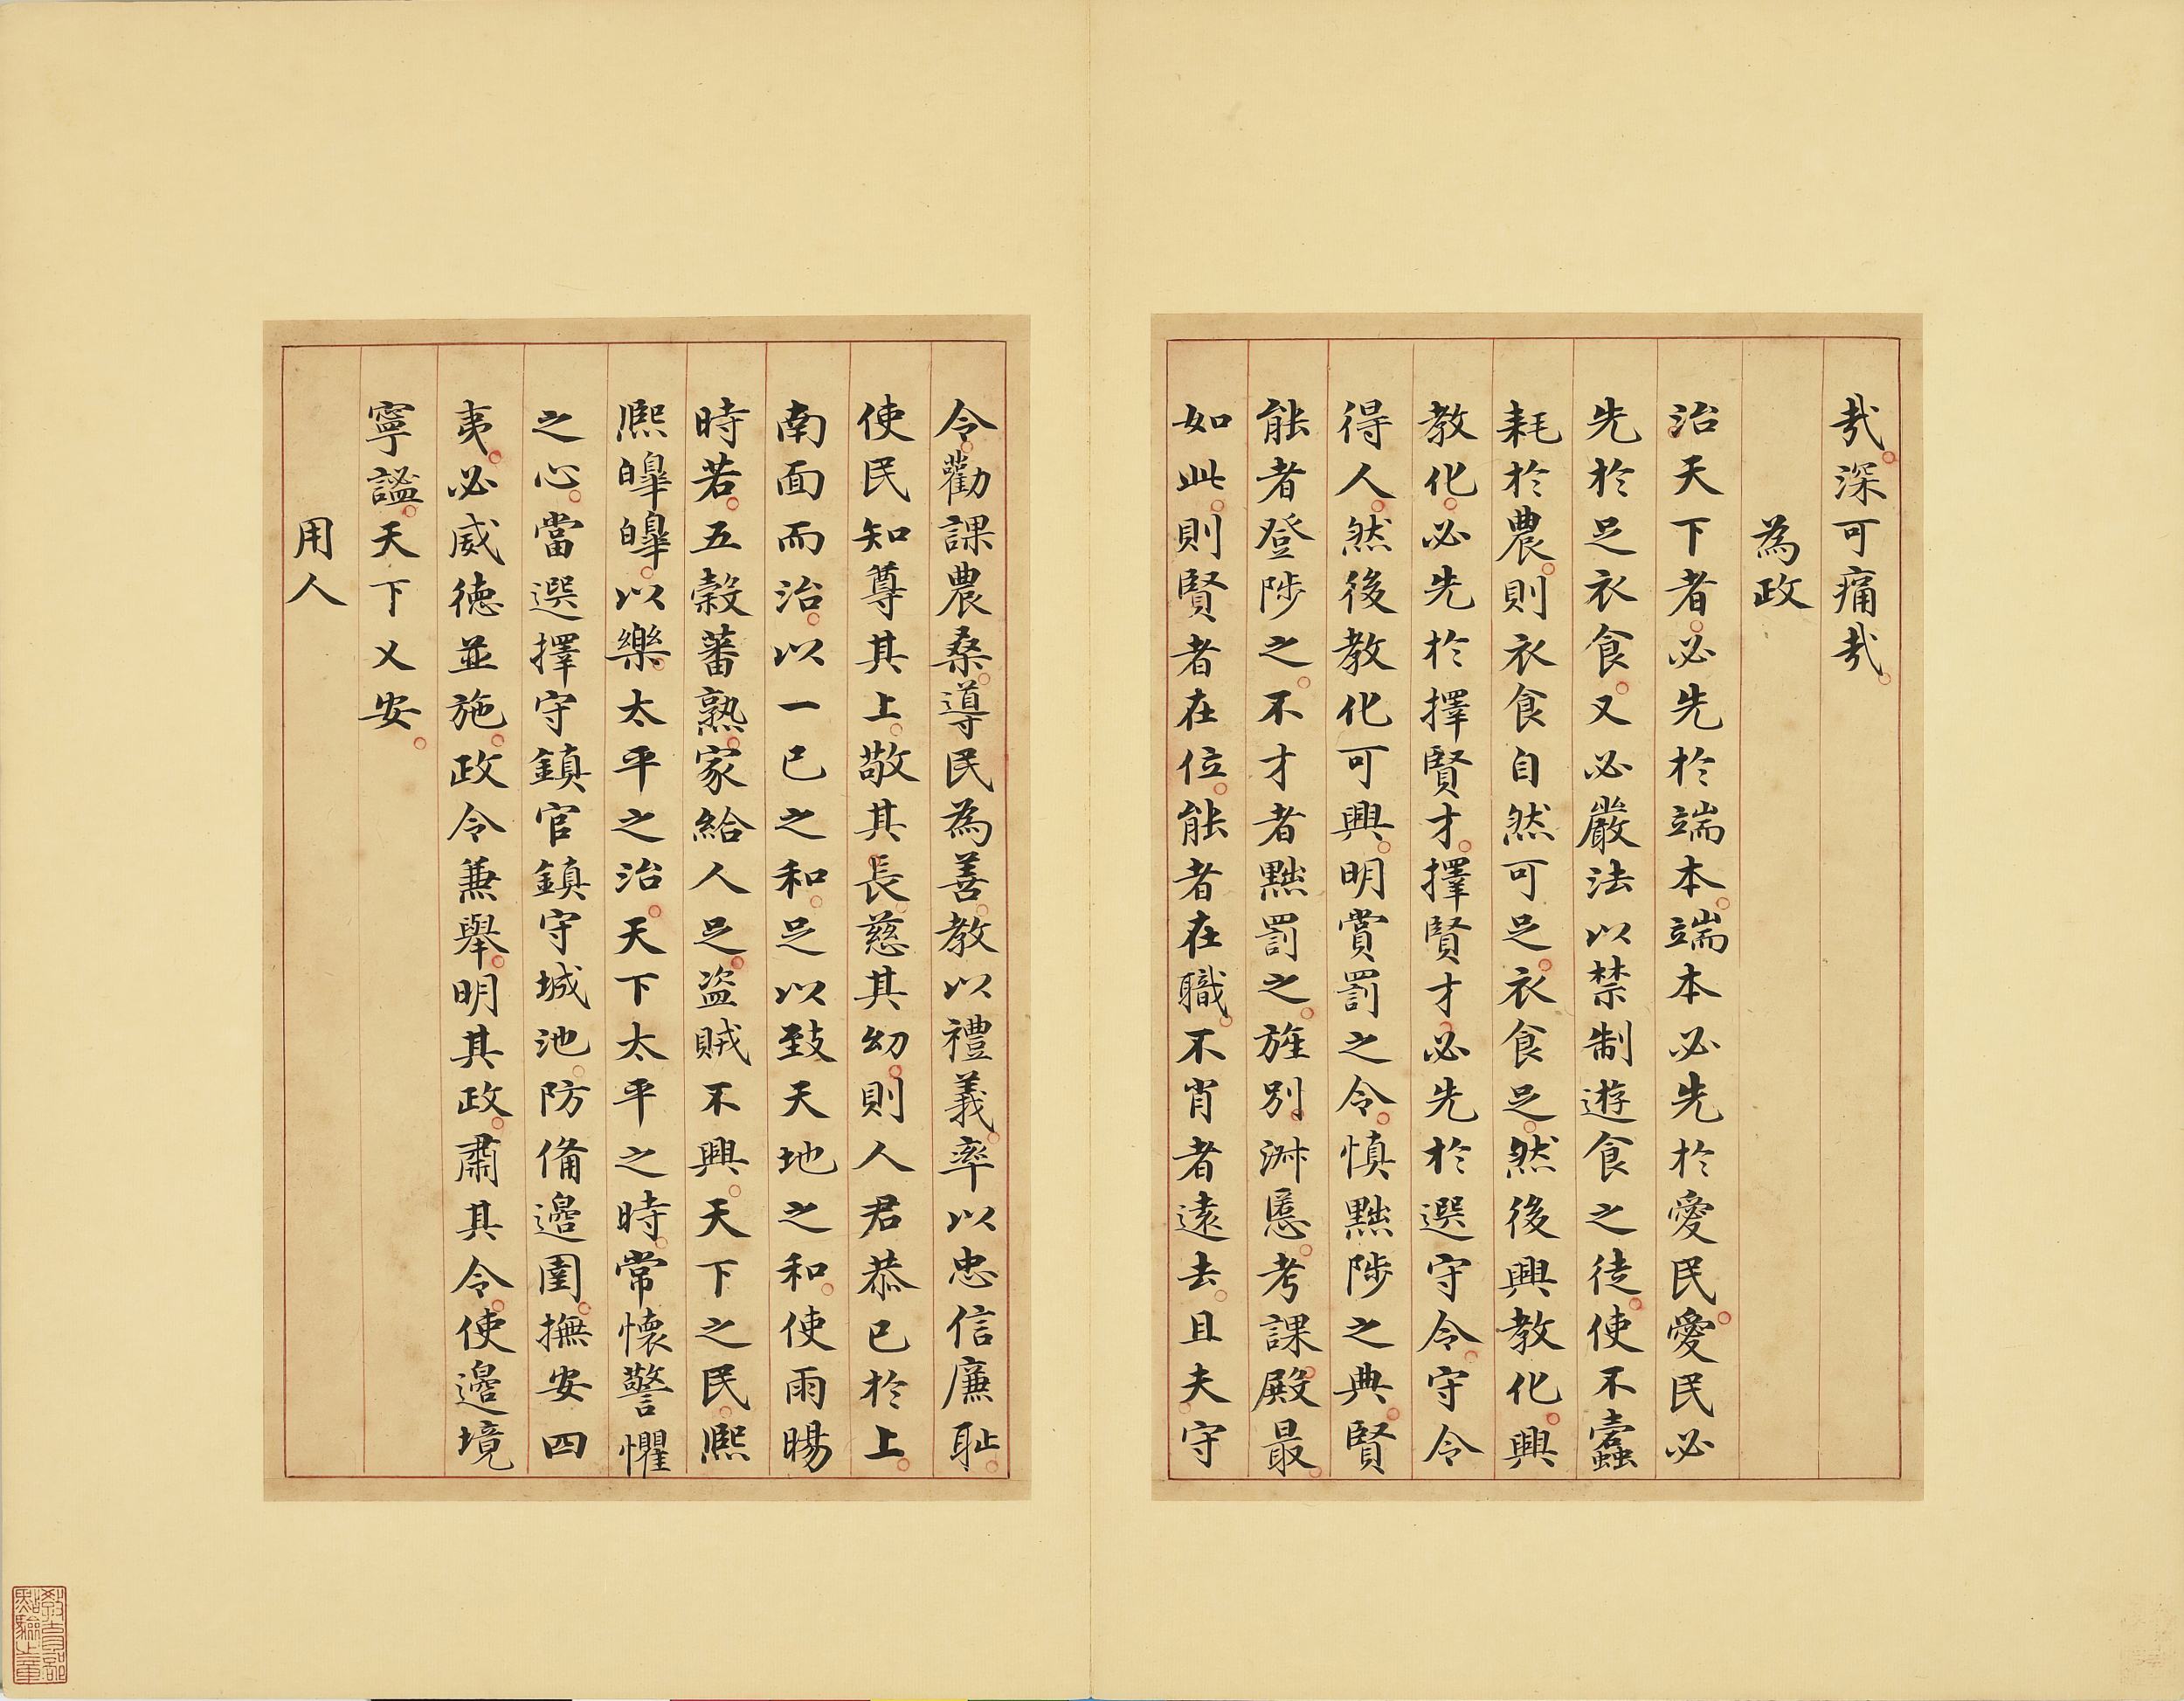 哉深可痛哉
為政
治天下者必先於端本端本必先於愛民愛民必
先於足衣食又必嚴法以禁制遊食之徒使不蠹
耗於農則衣食自然可足衣食足然後興教化興
教化必先於擇賢才擇賢才必先於選守令守令
得人然後教化可興明賞罰之令慎黜陟之典賢
能者登陟之不才者黜罰之旌別淑慝考課殿最
如此則賢者在位能者在職不肖者遠去且夫守
令勸課農桑導民為善教以禮義率以忠信廉恥
使民知尊其上敬其長慈其幼則人君恭已於上
南面而治以一已之和足以致天地之和使雨暘
時若五穀蕃熟家給人足盜賊不興天下之民熙
熙皞皞以樂太平之治天下太平之時常懷警懼
之心當選擇守鎮官鎮守城池防備邊圉撫安四
夷必威德並施政令兼舉明其政肅其令使邊境
寧謐天下乂安
用人
教育部
點驗之章